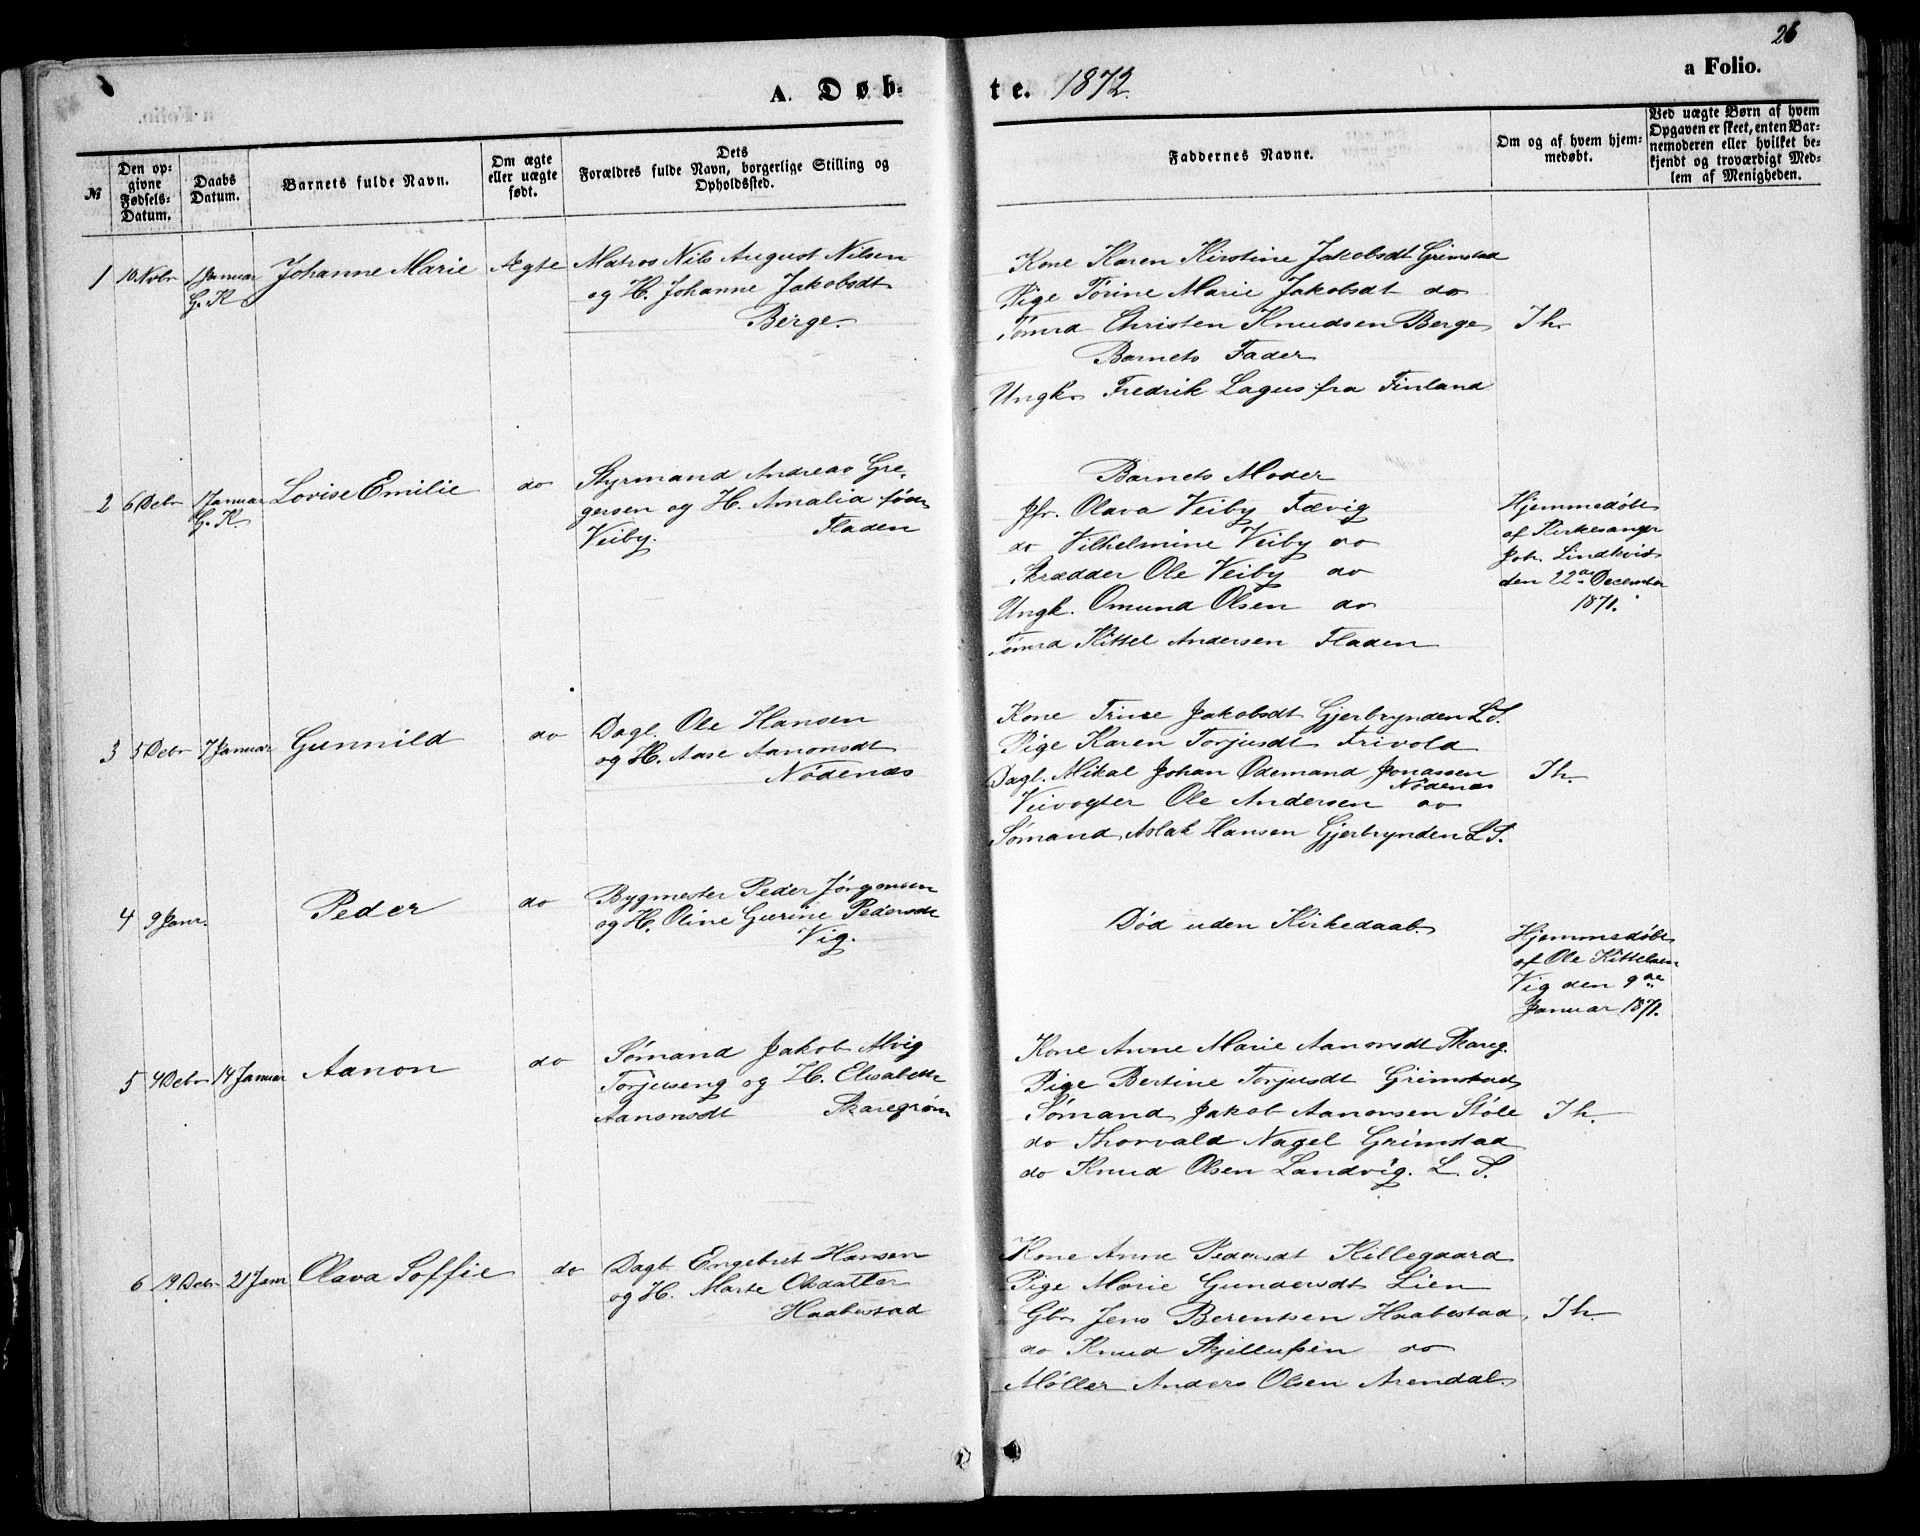 26
A. Døb-
te. 1872.
a Folio.
№
Den op-
givne
Fødsels-
Datum.
Daabs
Datum.
Barnets fulde Navn.
Om ægte
eller uægte
født.
Dets
Forældres fulde Navn, borgerlige Stilling og
Opholdssted.
Faddernes Navne.
Om og af hvem hjem-
medøbt.
Ved uægte Børn af hvem
Opgaven er skeet, enten Bar-
nemoderen eller hvilket be-
kjendt og troværdigt Med-
lem af Menigheden.
1 10 Novbr 1 Januar
G. K
Johanne Marie
Ægte
Matros Nils August Nilsen
og H. Johanne Jakobsdt
Berge.
Kone Karen Kirstine Jakobsdt Grimstad
Pige Torine Marie Jakobsdt do
Tømrd Christen Knudsen Berge
Barnets Fader
Ungk. Fredrik Lagus fra Finland
Ih.
2 6 Debr 1 Januar
G. K.
Lovise Emilie
do
Styrmand Andreas Gre-
gersen og H. Amalia født
Veiby. Fladen
Barnets Moder
Jfr. Olava Veiby Fævig
do Vilhelmine Veiby do
Skrædder Ole Veiby do
Ungk. Omund Olsen do
Tømrd Kittel Andersen Fladen
Hjemmedøbt
af Kirkesanger
Joh. Lindkvist
den 22de December
1871.
3 5 Debr 7 Januar
Gunnild
do
Dagl. Ole Hansen
og H. Aase Aanonsdt
Nødenæs
Kone Trine Jakobsdt Gjerbrynden L S.
Pige Karen Torjusdt Frivold
Dagl. Mikal Johan Odemand Jonassen
Nødenæs
Veivogter Ole Andersen do
Sømand Aslak Hansen Gjerbrynden L S.
Ih.
4 9 Janr.
Peder
do
Bygmester Peder Jørgensen
og H. Oline Gurine Pedersdt
Vig.
Død uden Kirkedaab.
Hjemmedøbt
af Ole Kittelsen
Vig den 9de
Januar 1871.
5 4 Debr 14 Januar
Aanon
do
Sømand Jakob Alvig
Torjuseng og H. Elisabeth
Aanonsdt Skaregrøm
Kone Anne Marie Aanonsdt Skareg.
Pige Bertine Torjusdt Grimstad
Sømand Jakob Aanonsen Støle
do Thorvald Nagel Grimstad
do Knud Olsen Landvig. L. S.
Ih.
6 19 Debr 21 Janr
Olava Soffie
do
Dagl. Engebret Hansen
og H. Marte Olsdatter
Haabestad
Kone Anne Pedersdt Killegaard
Pige Marie Gundersdt Lien
Gbr Jens Berentsen Haabestad
do Knud Skjellufsen do
Møller Anders Olsen Arendal.
Ih.